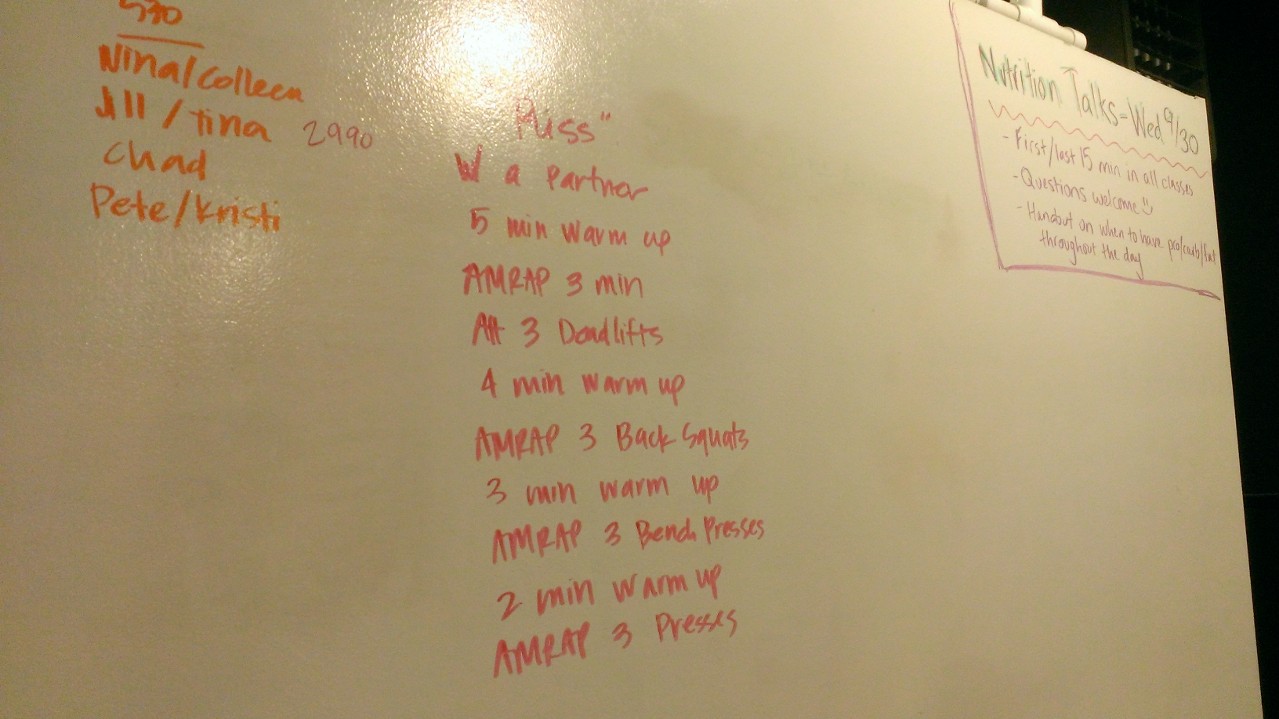 530
Nina/Colleen
Jill / Tina 2990
Chad
Pete/Kristi
Puss"
W a partner
5 min warm up
AMRAP 3 min
Alt 3 Deadlifts
4 min warm up
AMRAP 3 Back Squats
3 min warm up
AMRAP 3 Bench Presses
2 min warm up
AMRAP 3 Presses
Nutrition Talks - Wed 9/30
- First/last 15 min in all classes
- Questions welcome
- Handout on when to have pro/carb/fat
throughout the day